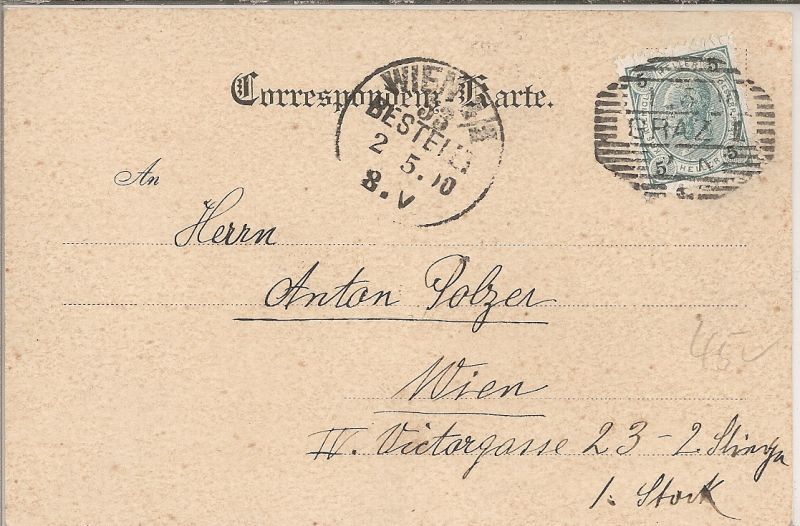 Correspondenz-Karte.
WIEN
BESTELLT
2 5.00
8.V
5 HELLER 5
GRAZ 1
5 HELLER 5
An
Herrn
Anton Polzer
Wien
IV. Victorgasse 23-2. Stiege
1. Stock
45